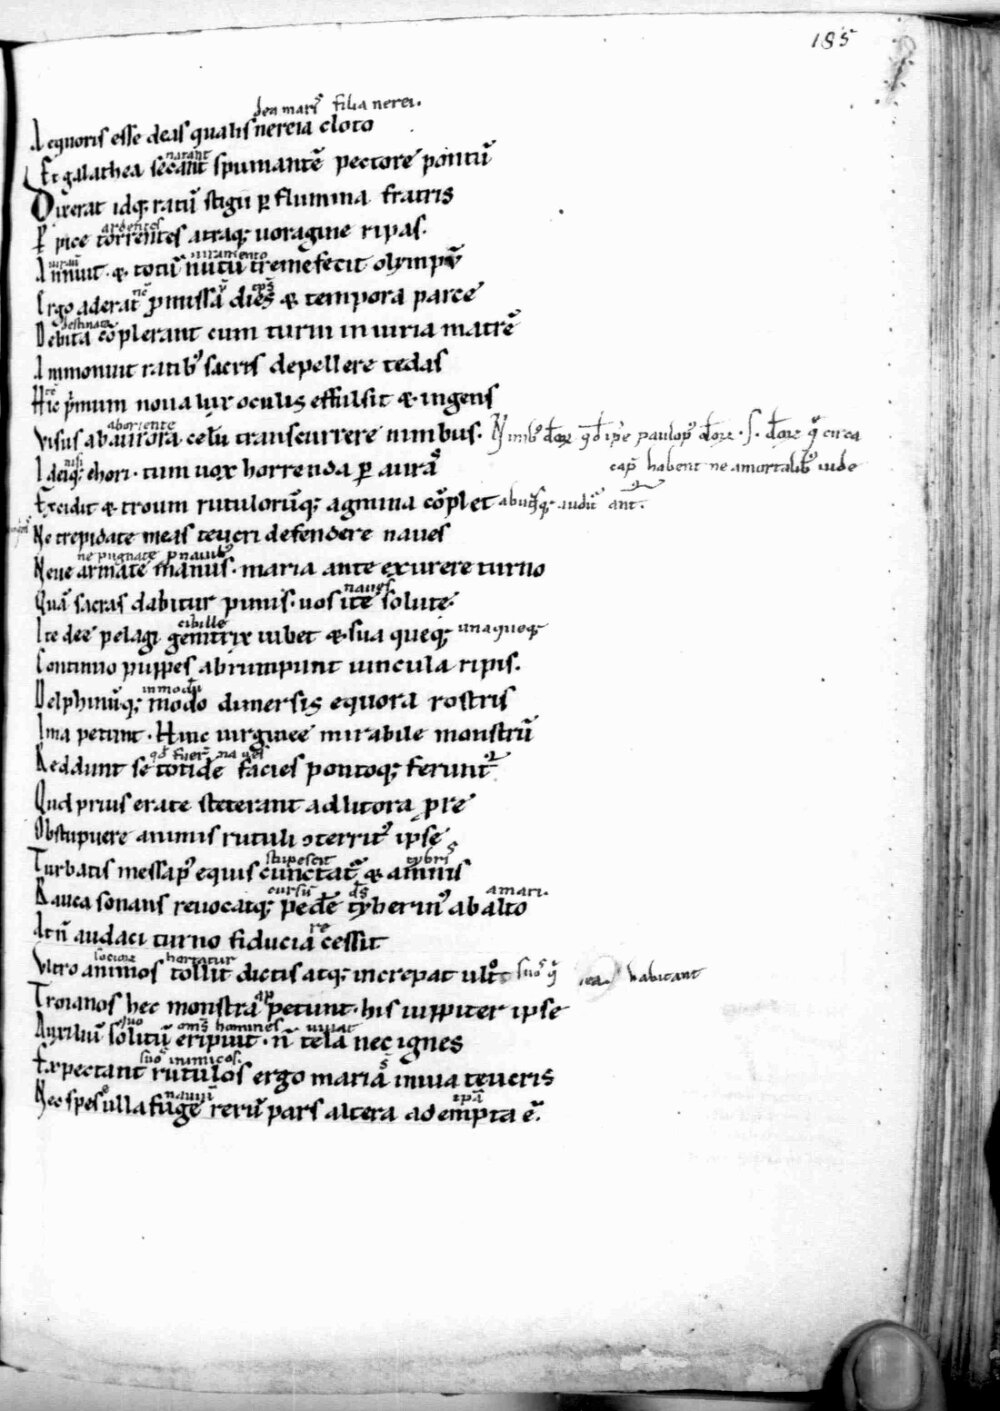 185
dea maris filia nerei.
Aequoris esse deas qualis nereia cloto
narant
Et galathea secant spumantē pectore pontū
Dixerat idq; ratū stigii ꝑ flumina fratris
ardentes
ꝑ pice torrentes atraq; uoragine ripas.
iuramento
Annuit · & · totū nutu tremefecit olympū
Ergo aderat ꝓmissa dies & tempora parce
destinata
Debita cōplerant cum turni iniuria matrē
Ammonuit ratibꝰ sacris depellere tedas
Hic p̄mum noua lux oculis effulsit & · ingens
aboriente
Visus ab aurora · celū transcurrere nimbus.
cap̄ habent ne amortalibꝰ uide
Ideiq; chori · tum uox horrenda ꝑ auras
Excidit & troum rutulorūq; agmina cōplet
Ne trepidate meas teucri defendere naues
ne pugnate ꝓ nauibꝰ
Neue armate manus · maria ante exurere turno
naues
Quā sacras dabitur pinus · uos ite solute ·
cibille
Ite dee pelagi genitrix iubet & · sua queq; unaqueq;
Continuo puppes abrumpunt uincula ripis.
inmodū
Delphinūq; modo dimersis equora rostris
Ima petunt · Hinc uirginee mirabile monstrū
Reddunt se totidē facies pontoq; ferunt᷑
Qud prius erate steterant ad litora p̄re
Obstupuere animis rutuli ɔterritꝰ ipse
stupescit tybris
Turbatis messapꝰ equis cunctat᷑ & amnis
cursū ds̄ amari.
Rauca sonans reuocatq; pedē tyberinꝰ ab alto
re
At n̄ audaci turno fiducia cessit
hortatur
Vltro animos tollit dictis atq; increpat ult᷑o
habitant
Troianos hec monstra petunt · his iuppiter ipse
quo om̄s homines
Auxiliū solitū eripuit · n̄ tela nec ignes
suos inimicos.
Expectant rutulos ergo maria inuia teucris
nauiū
Nec spes ulla fuge rerū pars altera adempta ē.